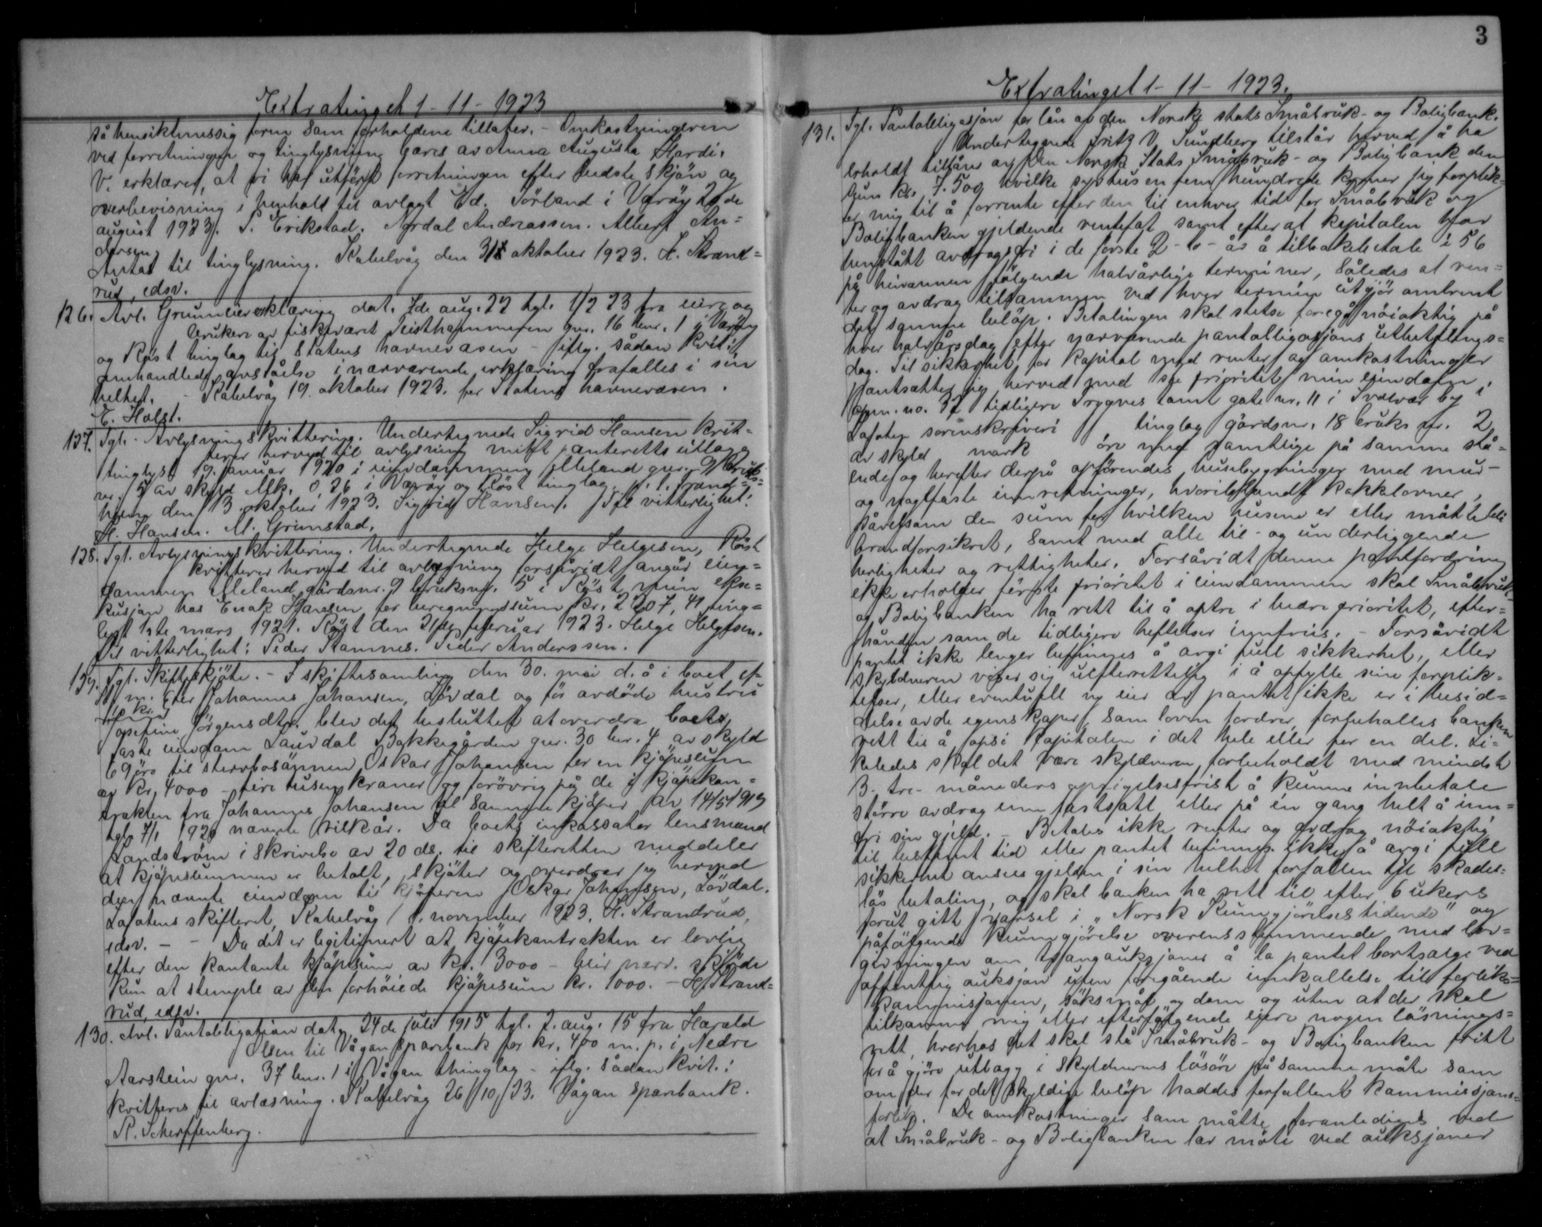 Extratinget 1-11-1923
så hensiktmessig form som forholdene tillater. - Omkostningerne
ved forretningen og tinglysning bæres av Anna Augusta Hardi.
Vi erklærer, at vi har utført forretningen efter bedste skjøn og
overbevisning i henhold til avlagt Ed. Sørland i Værøy 21de
august 1923. P. Erikstad. Nordal Andreassen. Albert An-
dersen.
Antat til tinglysning. Kabelvåg den 31 oktober 1923. H. Strand-
rud, edsv.
126. Avl. Grunneiererklæring dat. aug. 22 tgl. 1/2 23 fra eier og
bruker av fiskeværet gnr. 16 bnr. 1 i Værøy
og Røst tinglag til Statens havnevæsen - iflg. sådan kvit:
omhandlede avståelse i nærværende erklæring frafalles i sin
helhet. - Kabelvåg 19. oktober 1923. for Statens havnevæsen.
E. Holst.
127. Tgl. Avlysningskvittering. Undertegnede Sigrid Hansen kvit-
terer herved til avlysning mitt panteretts utlæg
tinglyst 19. januar 1920 i eiendommen gnr. 9 bruks-
nr. 5 av skyld Mk. 0,26 i Værøy og Røst tinglag.
den 13 oktober 1923. Sigrid Hansen. Til vitterlighet:
H. Hansen. M. Grimstad.
128. Tgl. Avlysningskvittering. Undertegnede Helge Helgesen, Røst
kvitterer herved til avlysning forsåvidt angår eien-
dommen gårdsnr. 9 bruksnr. 5 i Røst min ekse-
kusjon hos Enok Hansen for beregningssum kr. 2207,41 ting-
lyst 1ste mars 1921. Røst den februar 1923. Helge Helgesen.
Til vitterlighet: Peder Stamnes. Peder Anderssen.
129. Tgl. Skifteskjøte. - I skiftesamling den 30. mai d.å i boet ef-
ter Johannes Johansen, Løvdal og før avdøde hustru
Josefine Jørgensdtr. blev det besluttet at overdra boets
faste eiendom Lauvdal Bakkegården gnr. 30 bnr. 4 av skyld
69 øre til stervbosønnen Oskar Johansen for en kjøpesum
av kr. 4000 - fire tusen kroner og forøvrig på de i kjøpekon-
trakten fra Johannes Johansen til samme kjøper av 14/5 1919
tgl. 7/1 1920 nævnte vilkår. Da boets inkassator lensmand
Landstrøm i skrivelse av 20 ds. til skifteretten meddeler
at kjøpesummen er betalt, skjøter og overdrar jeg herved
den nævnte eiendom til kjøperen Oskar Johansen, Løvdal.
Lofotens skifterett, Kabelvåg 1. november 1923. H. Strandrud,
edsv. - - Da det er legitimert at kjøpekontrakten er lovlig
efter den kontante kjøpesum av kr. 3000 - blir nærv. skjøte
kun at stemple av den forhøiede kjøpesum kr. 1000. - H. Strand-
rud, edsv.
130. Avl. Pantobligasjon dat. 24de juli 1915 tgl. 2. aug. 15 fra Harald
Olsen til Vågan sparebank for kr. 400 m. p. i Nedre
Aarstein gnr. 37 bnr. 1 i Vågan thinglag - iflg. sådan kvit.:
kvitteres til avlæsning. Kabelvåg 26/10/23. Vågan sparebank.
R. Scherffenberg.
3
Extratinget 1-11-1923.
131. Tgl. Pantobligasjon for lån av den Norske stats Småbruk- og Boligbank.
Undertegnede Fritz V. Sundberg tilstår herved å ha
erholdt tillåns av Den Norske Stats Småbruk- og Boligbank den
sum kr. 7.500 hvilke syvtusen fem hundrede kroner jeg forplik-
ter mig til å forrente efter den til enhver tid for Småbruk og
Boligbanken gjeldende rentefot samt efter at kapitalen har
henstått avdragsfri i de første 2 - to - år å tilbakebetale i 56
på hinannen følgende halvårlige terminer, således at ren-
ter og avdrag tilsammen ved hver termin utgjør omtrent
det samme beløp. Betalingen skal stetse foregå nøiaktig på
hver halvårsdag efter nærværende pantobligasjons utstedelses-
dag. Til sikkerhet for kapital med renter og omkostninger
pantsætter jeg herved med 1ste prioritet min eiendom:
no. 32 tidligere Trygves tomt gate nr. 11 i Svolvær by i
Lofoten sorenskriveri tinglag gårdsnr. 18 bruks nr. 2
av skyld mark øre med samtlige på samme stå-
ende og herefter derpå opførendes husebygninger med mur-
og naglfaste innretninger, hvoriblandt kakkelovner,
såvelsom den sum for hvilken husene er eller måtte bli
brandforsikret, samt med alle til- og underliggende
herligheter og rettigheter. Forsåvidt denne pantfordring
ikke erholder første prioritet i eiendommen skal Småbruk
og Boligbanken ha rett til å optre i bedre prioritet, efter-
hånden som de tidligere heftelser innfries. - Forsåvidt
pantet ikke lenger befinnes å avgi full sikkerhet, eller
skyldneren viser sig uefterrettelig i å opfylle sine forplik-
telser, eller eventuelt ny eier av pantet ikke er i besid-
delse av de egenskaper som loven fordrer, forbeholles banken
rett til å opsi kapitalen i det hele eller for en del. Li-
keledes skal det være skyldneren forbeholdt med mindst
3 - tre - måneders opsigelsesfrist å kunne innbetale
større avdrag enn fastsatt eller på en gang helt å inn-
fri sin gjeld. - Betales ikke renter og avdrag nøiaktig
til bestemt tid eller pantet befinnes ikke å avgi full
sikkerhet ansees gjelden i sin helhet forfallen til skades-
løs betaling, og skal banken ha rett til efter 6 ukers
forut gitt varsel i "Norsk Kunngjørelsestidende" og
påfølgende kunngjørelse overensstemmende med lov-
givningen om tvangsauksjoner å la pantet bortsælge ved
offentlig auksjon uten foregående innkallelse til forliks-
kommisjonen, søksmål og dom og uten at der skal
tilkomme mig eller efterfølgende eiere nogen løsnings-
rett, hverhos det skal stå Småbruk- og Boligbanken fritt
for å gjøre utlegg i skyldnerens løsøre på samme måte som
om der for det skyldige beløp hadde forfallent kommissjons-
forlik. De omkostninger som måtte foranlediges ved
at Småbruk- og Boligbanken lar møte ved auksjoner